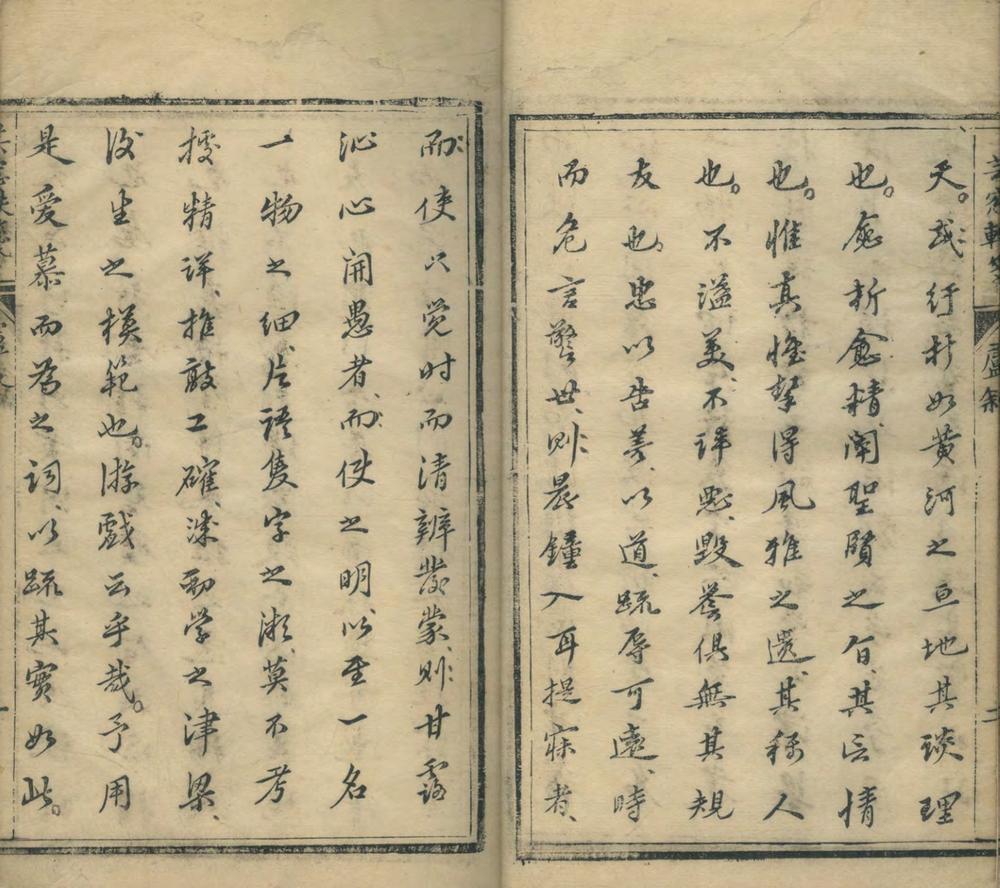 天。或紆折如黃河之亘地其談理
也。愈析愈精、闡聖賢之旨、其言情
也。惟真惟摯得風雅之遺、其稱人
也。不溢美、不詳惡、毀譽俱無其規
友也、忠以告善、以道、疏辱可遠、時
而危言警世、則晨鐘入耳提寐者、
而使之覺时而清辨發蒙、則甘露
沁心開愚者、而使之明、以至一名
一物之細、片語隻字之微、莫不考
據精詳、推敲工確、洵初學之津梁、
後生之模範也。游戲云乎哉。予用
是愛慕而為之詞、以疏其實如此。